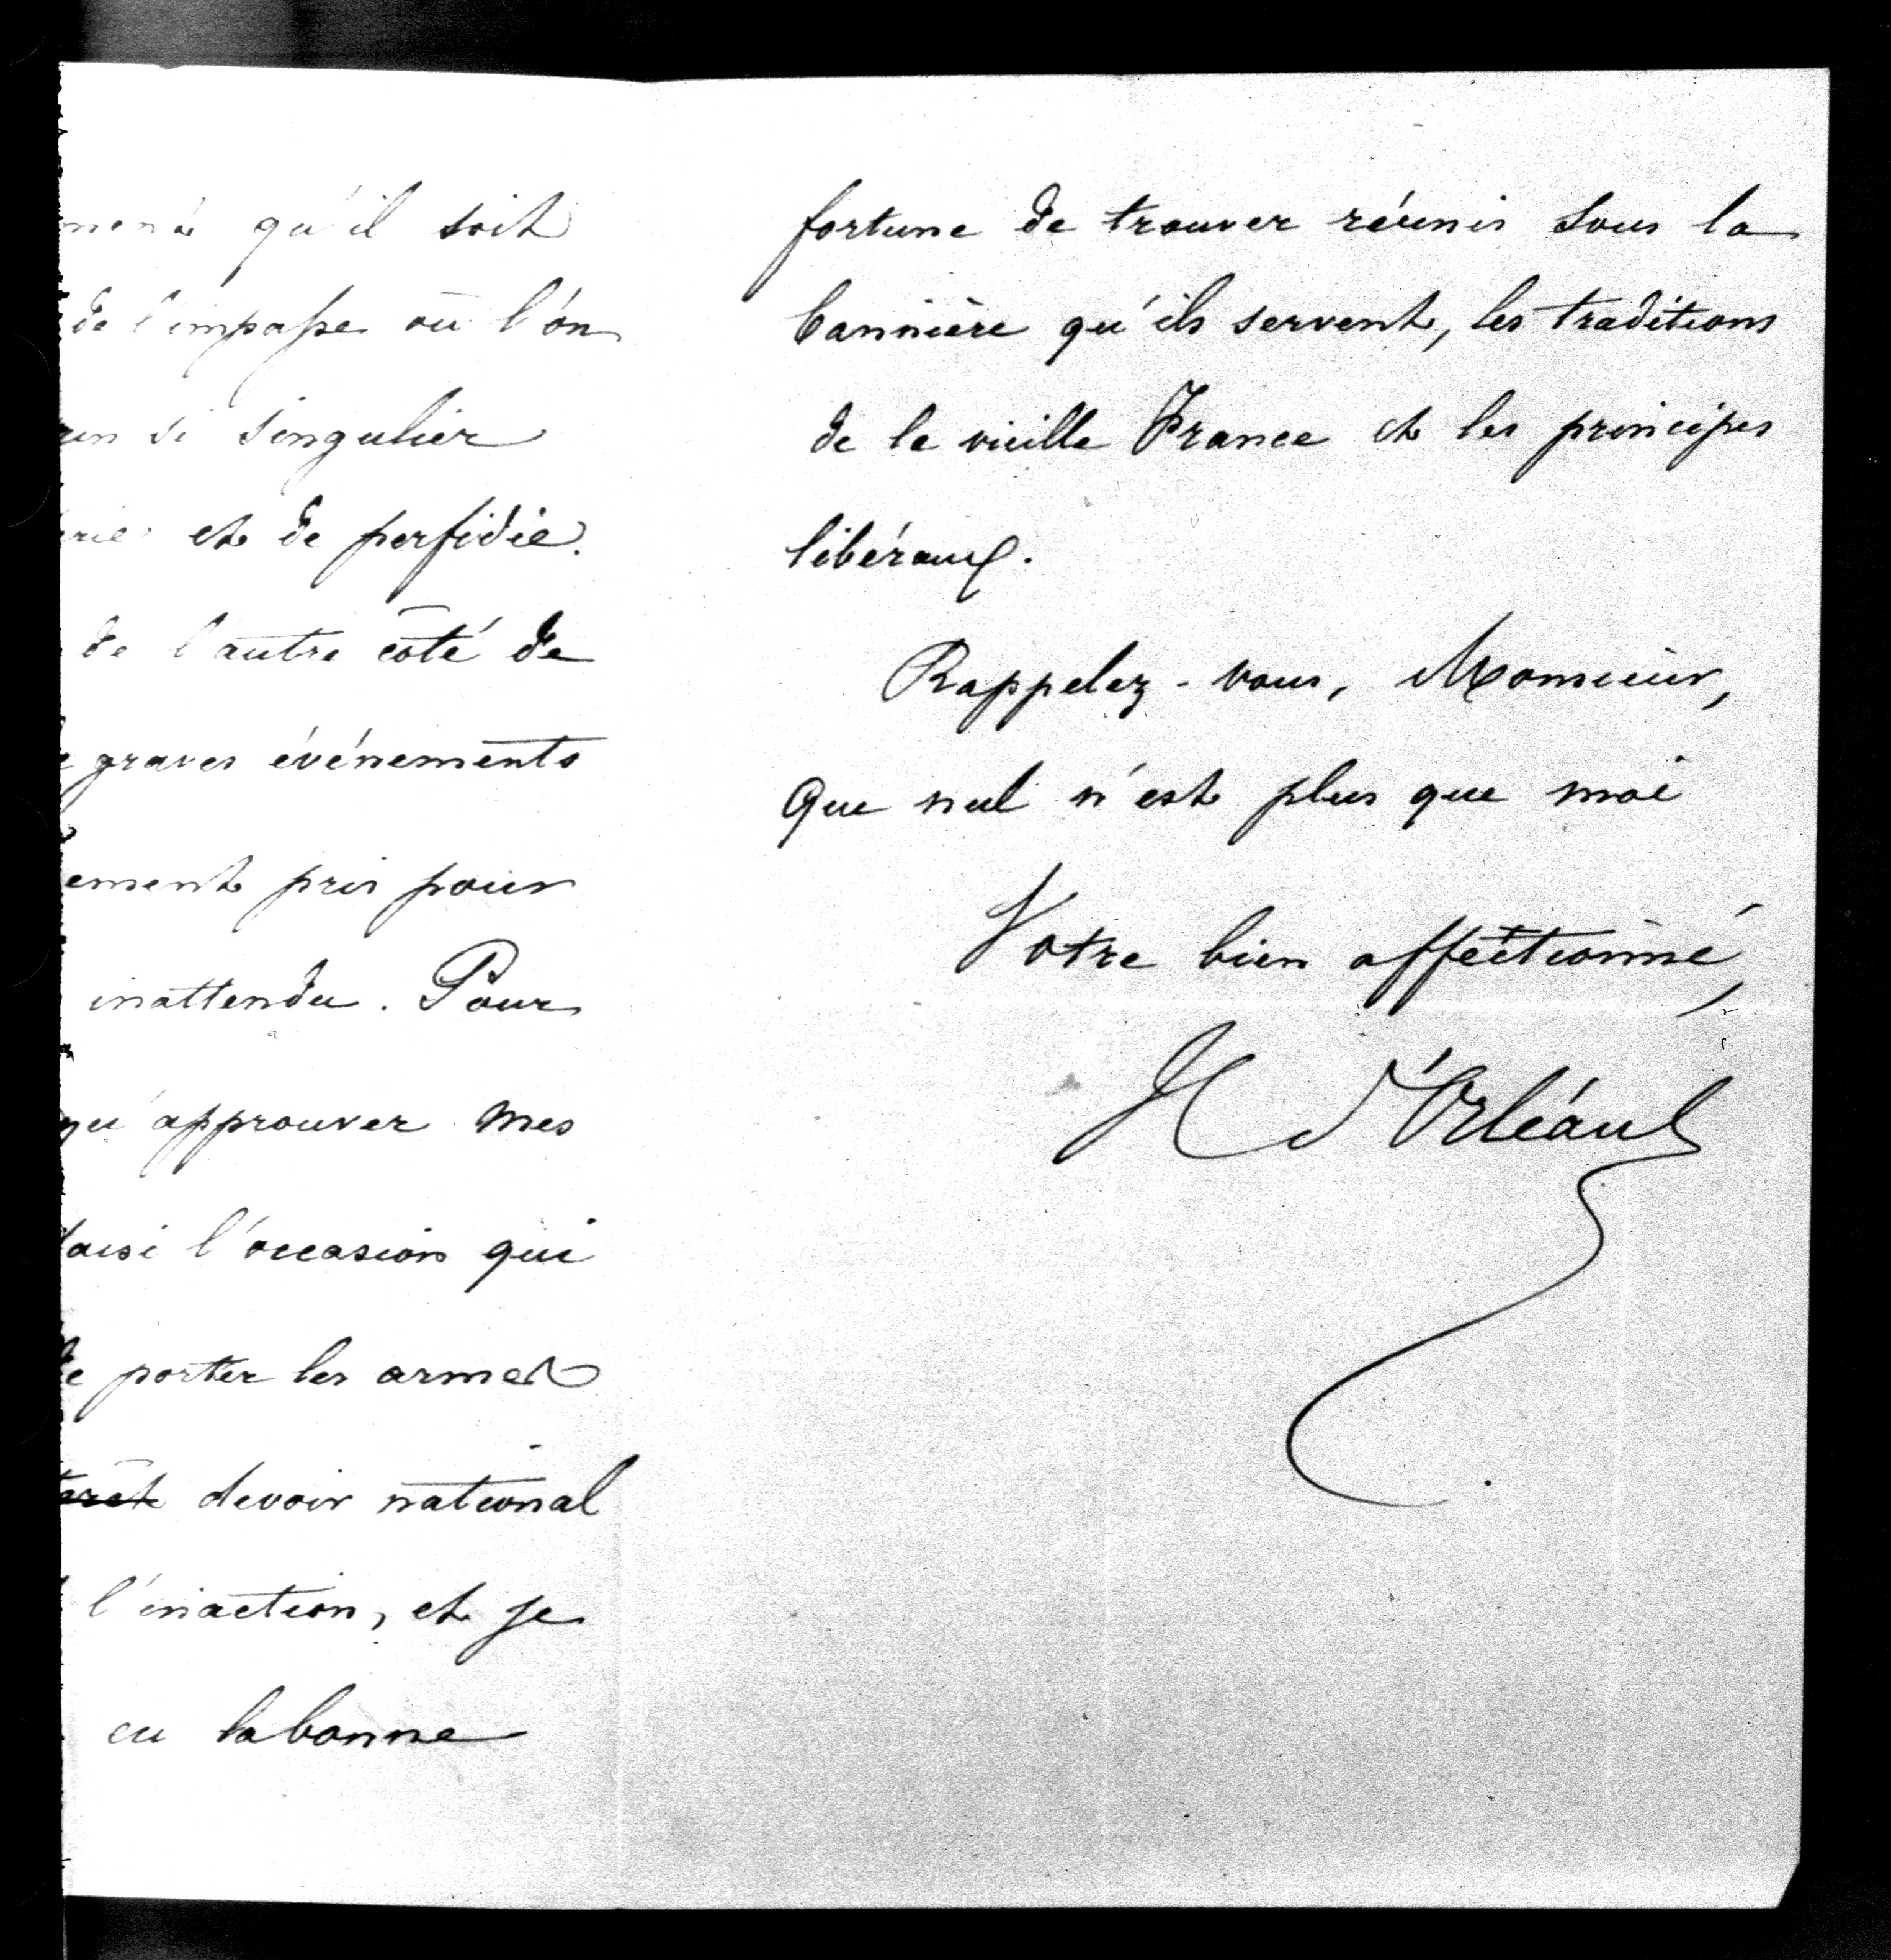 qu'il soit
de l'impasse où l'on
si singulier
et de perfidie.
de l'autre côté de
graves événements
pris pour
inattendu. Pour
qu'approuver mes
l'occasion qui
porter les armes
devoir national
l'inaction, et je
eu la bonne
fortune de trouver réunis sous la
bannière qu'ils servent, les traditions
de la vieille France et les principes
libéraux.
Rappelez-vous, Monsieur,
Que nul n'est plus que moi
Votre bien affectionné,
H d'Orléans